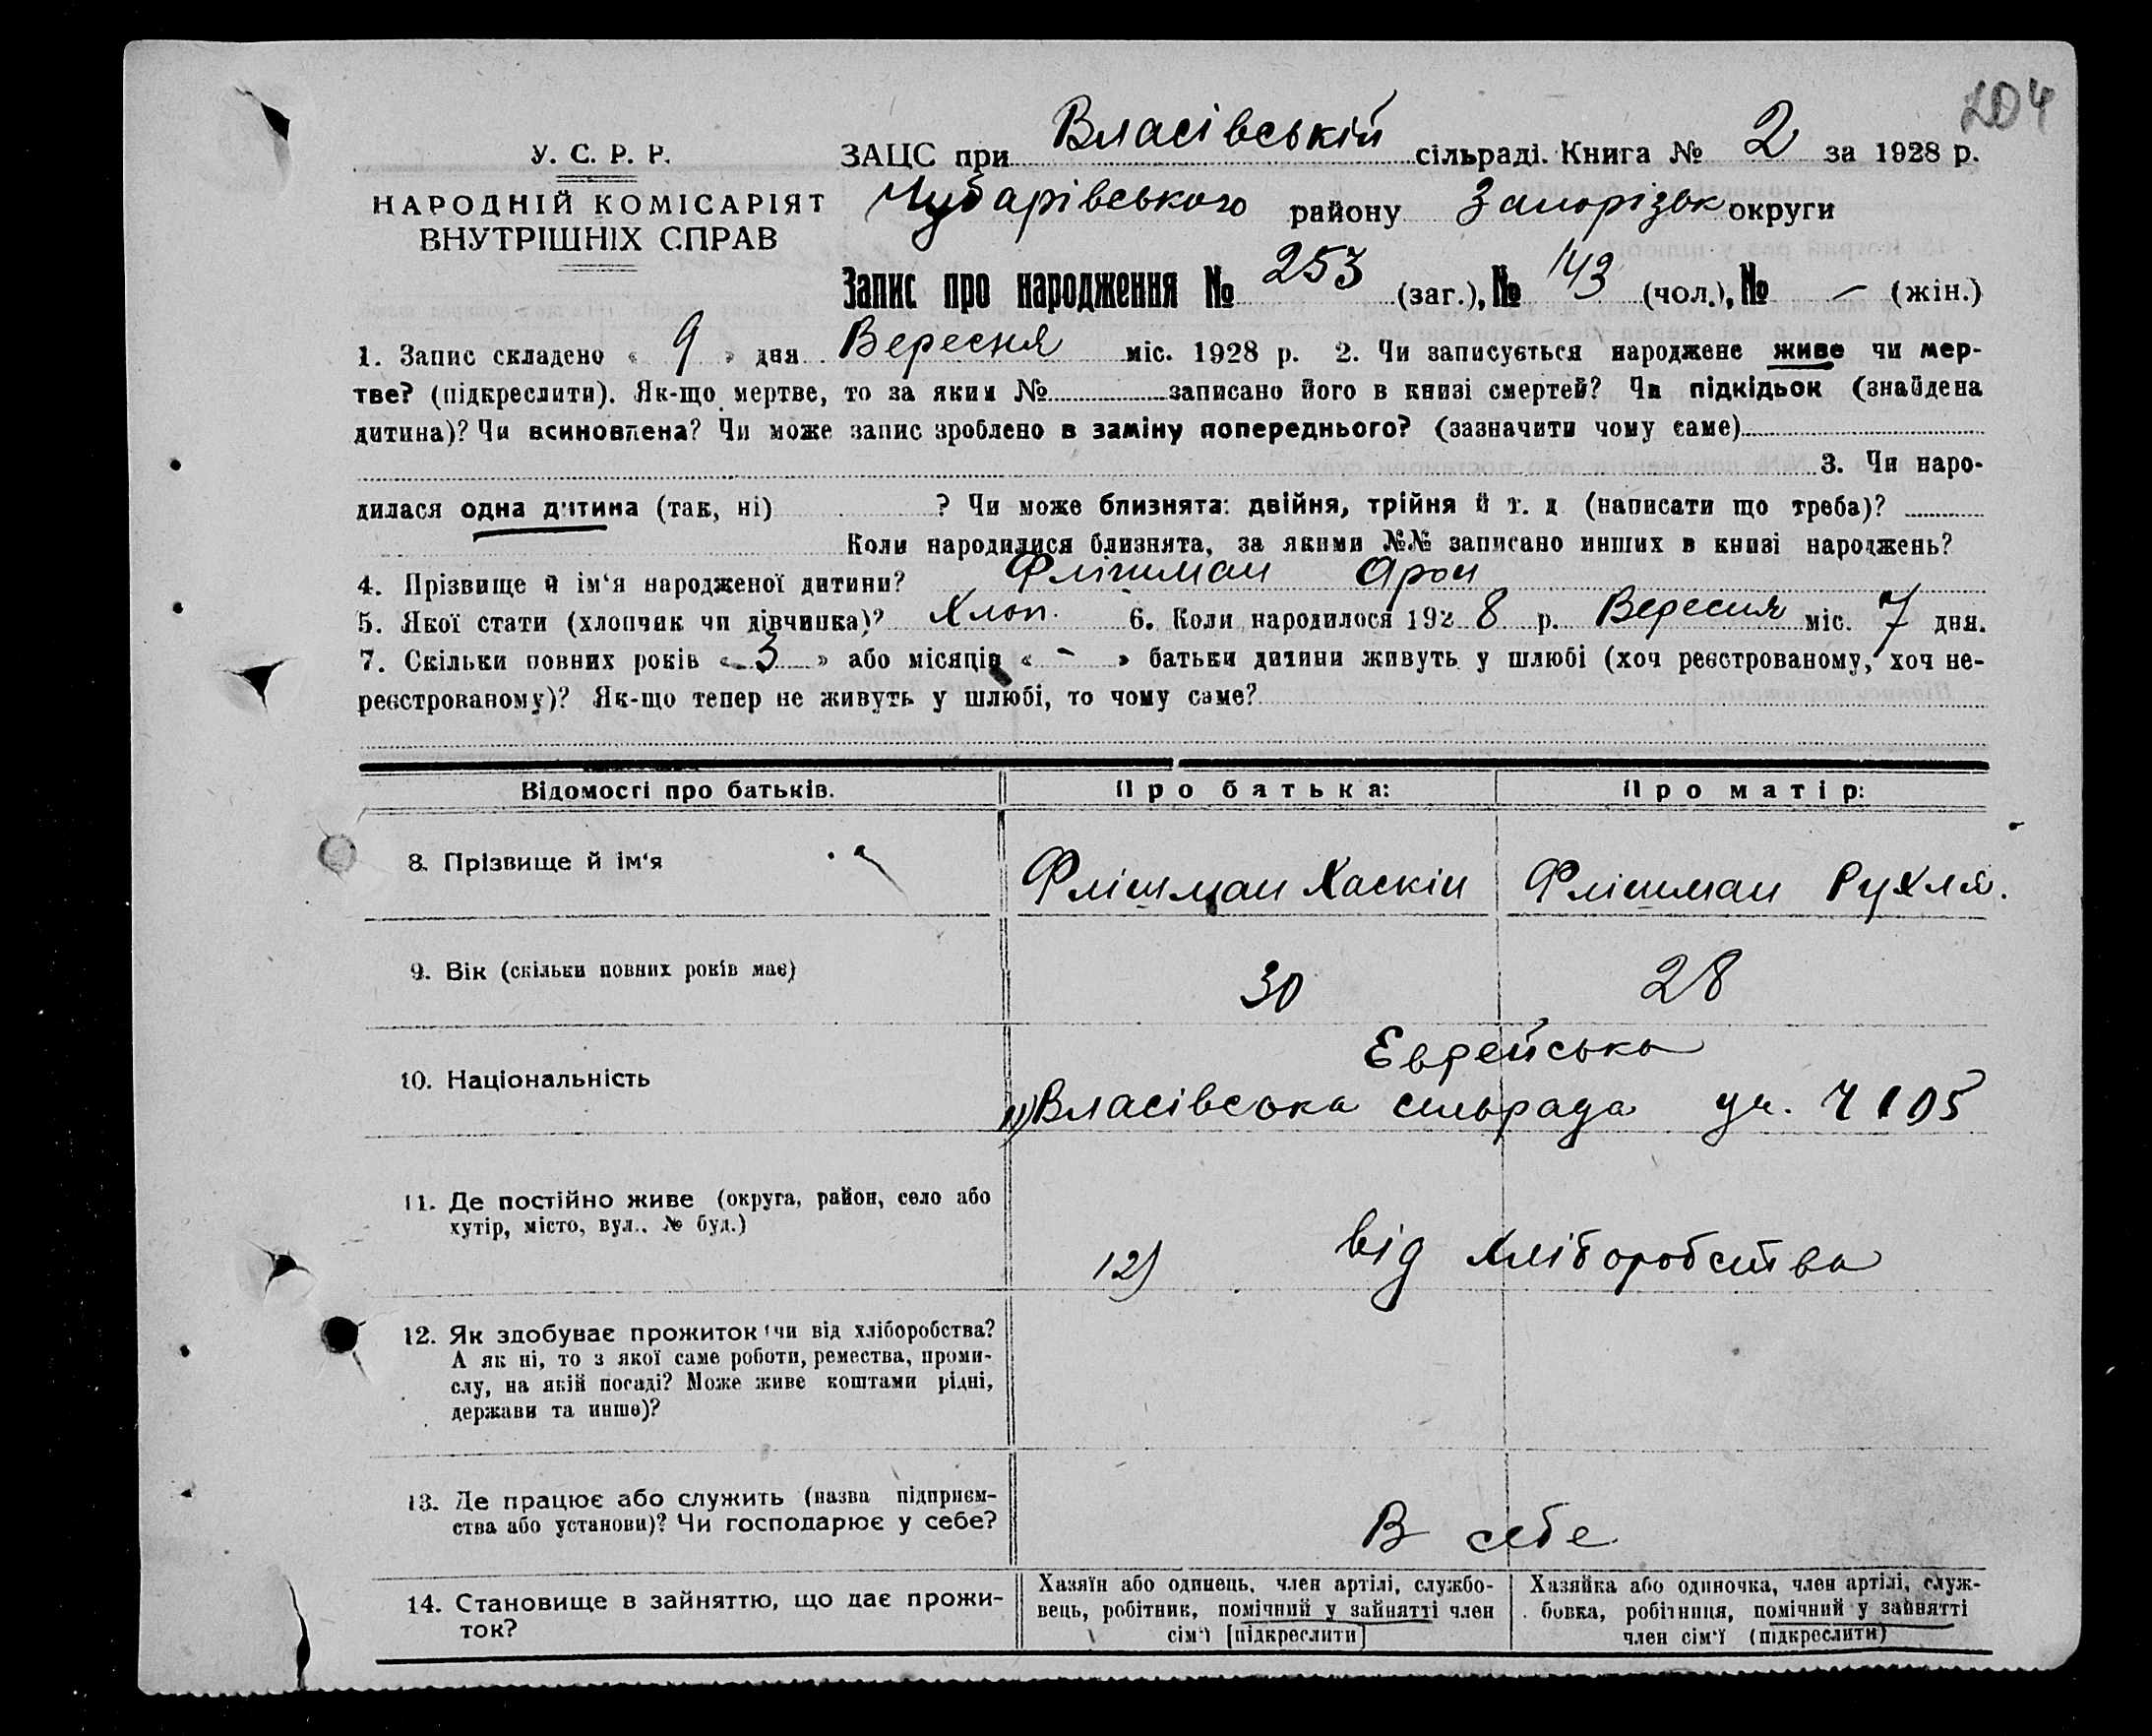 204
У. С. Р. Р. ЗАЦС при Власівській сільраді. Книга № 2 за 1928 р.
НАРОДНІЙ КОМІСАРІЯТ Чубарівського району Запорізьк округи
ВНУТРІШНІХ СПРАВ
Запис про народження № 253 (заг.), № 143 (чол.), № – (жін.)
1. Запис складено « 9 » дня Вересня міс. 1928 р. 2. Чи записується народжене живе чи мер-
тве? (підкреслити). Як-що мертве, то за яким № записано його в книзі смертей? Чи підкідьок (знайдена
дитина)? Чи всиновлена? Чи може запис зроблено в заміну попереднього? (зазначити чому саме)
3. Чи наро-
дилася одна дитина (так, ні) ? Чи може близнята: двійня, трійня й т. д (написати що треба)?
Коли народилися близнята, за якими №№ записано инших в книзі народжень?
4. Прізвище й ім‘я народженої дитини? Флішман Арон
5. Якої стати (хлопчик чи дівчинка)? Хлоп. 6. Коли народилося 1928 р. Вересня міс. 7 дня.
7. Скільки повних років « 3 » або місяців « – » батьки дитини живуть у шлюбі (хоч реєстрованому, хоч не-
реєстрованому)? Як-що тепер не живуть у шлюбі, то чому саме?
Відомості про батьків. Про батька: Про матір:
8. Прізвище й ім‘я Флішман Хаскін Флішман Рухля.
9. Вік (скільки повних років має) 30 28
10. Національність Еврейська
11) Власівська сільрада уч. 4105
11. Де постійно живе (округа, район, село або
хутір, місто, вул.. № буд.)
12) від хліборобства
12. Як здобуває прожиток (чи від хліборобства?
А як ні, то з якої саме роботи, ремества, проми-
слу, на якій посаді? Може живе коштами рідні,
держави та инше)?
13. Де працює або служить (назва підприєм-
ства або установи)? Чи господарює у себе? В себе
14. Становище в зайняттю, що дає прожи-
ток?
Хазяїн або одинець, член артілі, службо-
вець, робітник, помічний у зайнятті член
сім‘ї [підкреслити]
Хазяйка або одиночка, член артілі, служ-
бовка, робітниця, помічний у зайнятті
член сім‘ї (підкреслити)